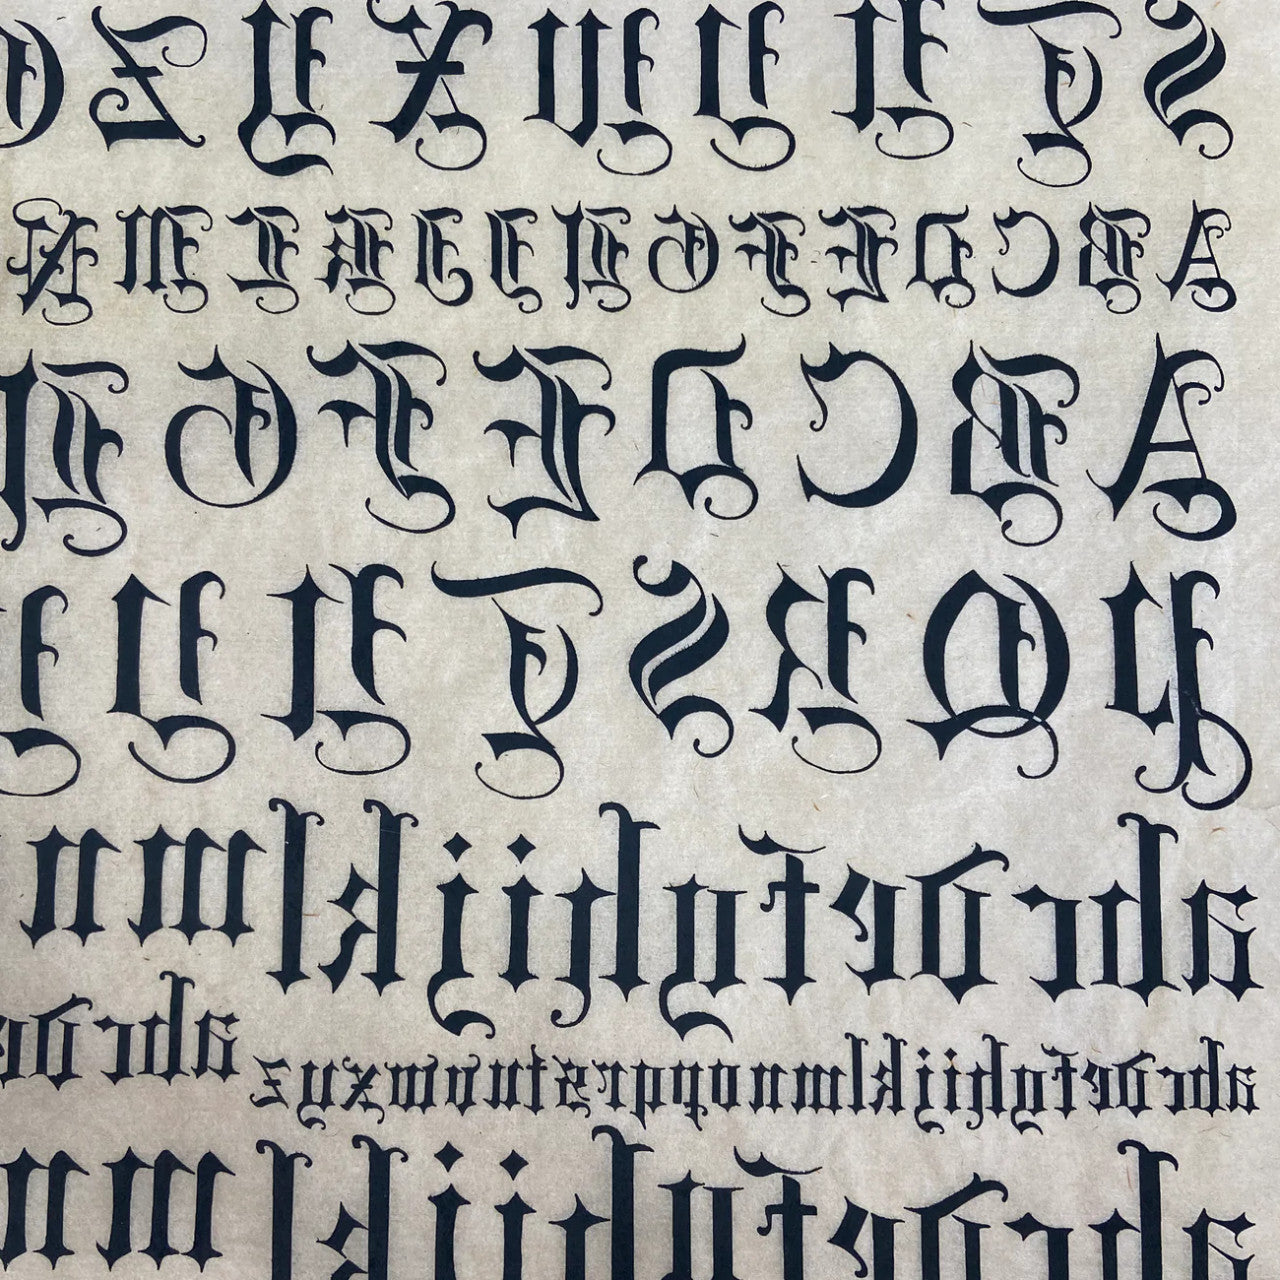 S T U V W X Y Z
A B C D E F G H I J K L M N
A B C D E F G H
P Q R S T U V
a b c d e f g h i j k l m n
a b c d
a b c d e f g h i j k l m n o p q r s t u v w x y z
a b c d e f g h i j k l m n